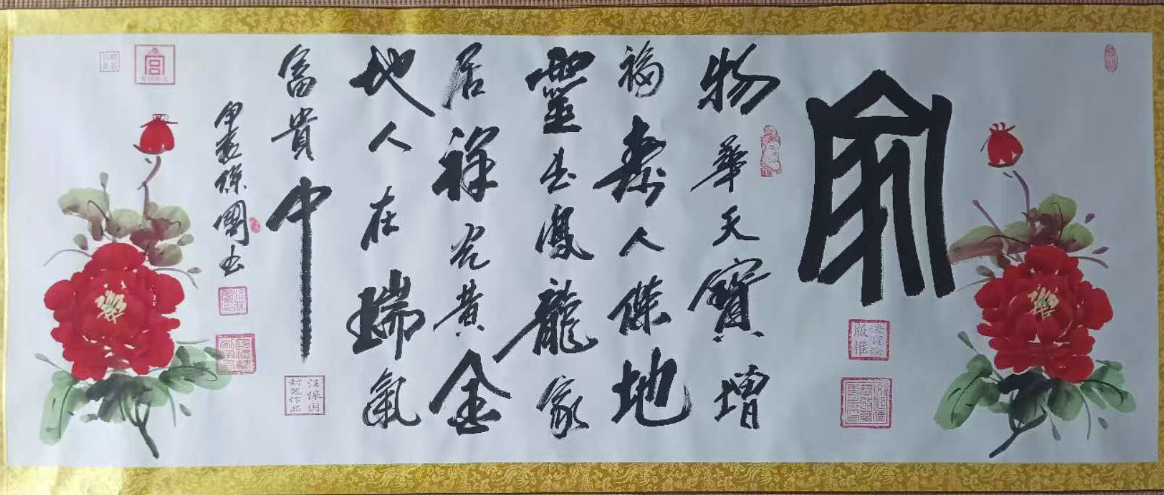 俞
物華天寶增
福壽人傑地
靈出鳳龍家
居祥光黃金
地人在瑞氣
富貴中
甲辰保國書
汪保国
封笔作品